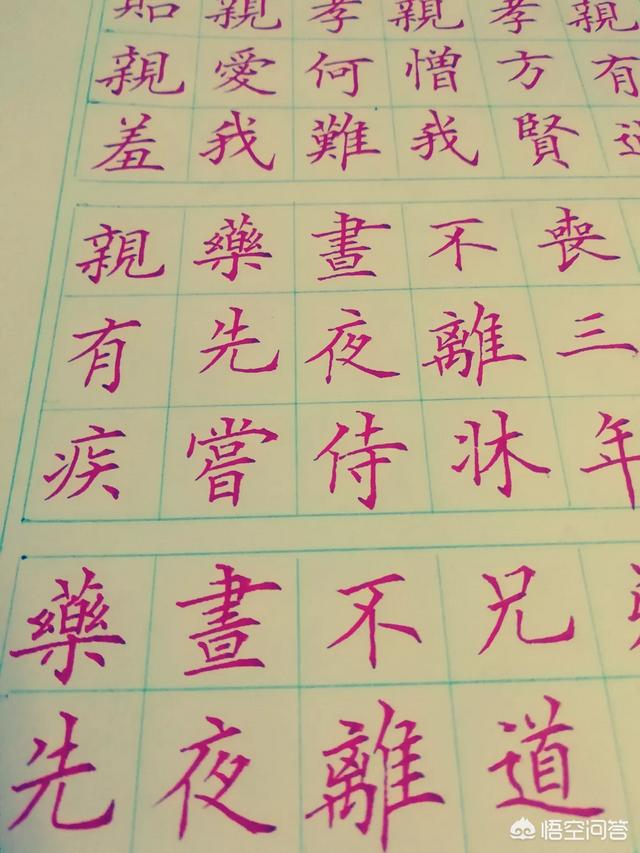 貽親羞
親愛我
孝何難
親憎我
孝方賢
親有
親有疾
藥先嘗
晝夜侍
不離牀
喪三年
藥先
晝夜
不離
兄道
悟空问答